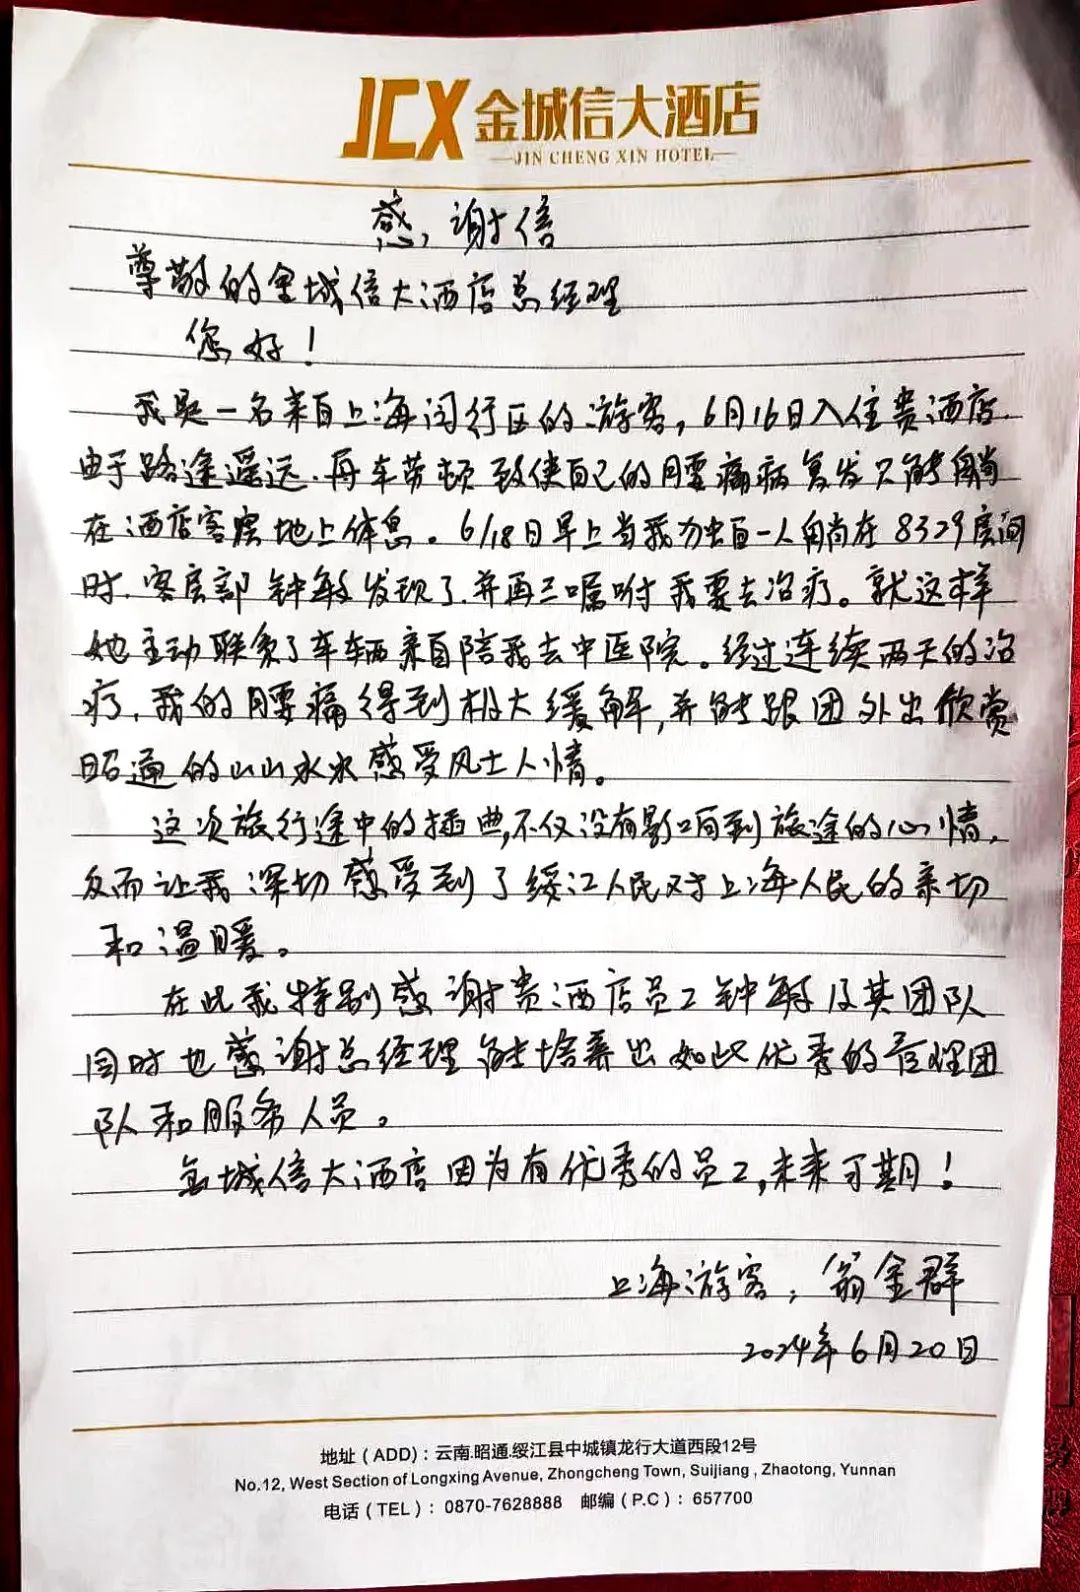 JCX 金城信大酒店
JIN CHENG XIN HOTEL
感谢信
尊敬的金城信大酒店总经理
您好！
我是一名来自上海闵行区的游客，6月16日入住贵酒店.
由于路途遥远.再车劳顿 致使自己的腰痛病复发只能躺
在酒店客房地上休息。6/18日早上当我独自一人躺在8329房间
时.客房部 钟敏发现了.并再三嘱咐我要去治疗。就这样
她主动联系了车辆亲自陪我去中医院。经过连续两天的治
疗，我的腰痛得到极大缓解，并能跟团外出欣赏
昭通的山山水水感受风土人情。
这次旅行途中的插曲，不仅没有影响到旅途的心情，
反而让我深切感受到了绥江人民对上海人民的亲切
和温暖。
在此我特别感谢贵酒店员工钟敏及其团队
同时也感谢总经理能培养出如此优秀的管理团
队和服务人员。
金城信大酒店因为有优秀的员工，未来可期！
上海游客：翁金群
2024年6月20日
地址（ADD）：云南.昭通.绥江县中城镇龙行大道西段12号
No.12, West Section of Longxing Avenue, Zhongcheng Town, Suijiang , Zhaotong, Yunnan
电话（TEL）：0870-7628888 邮编（P.C）：657700